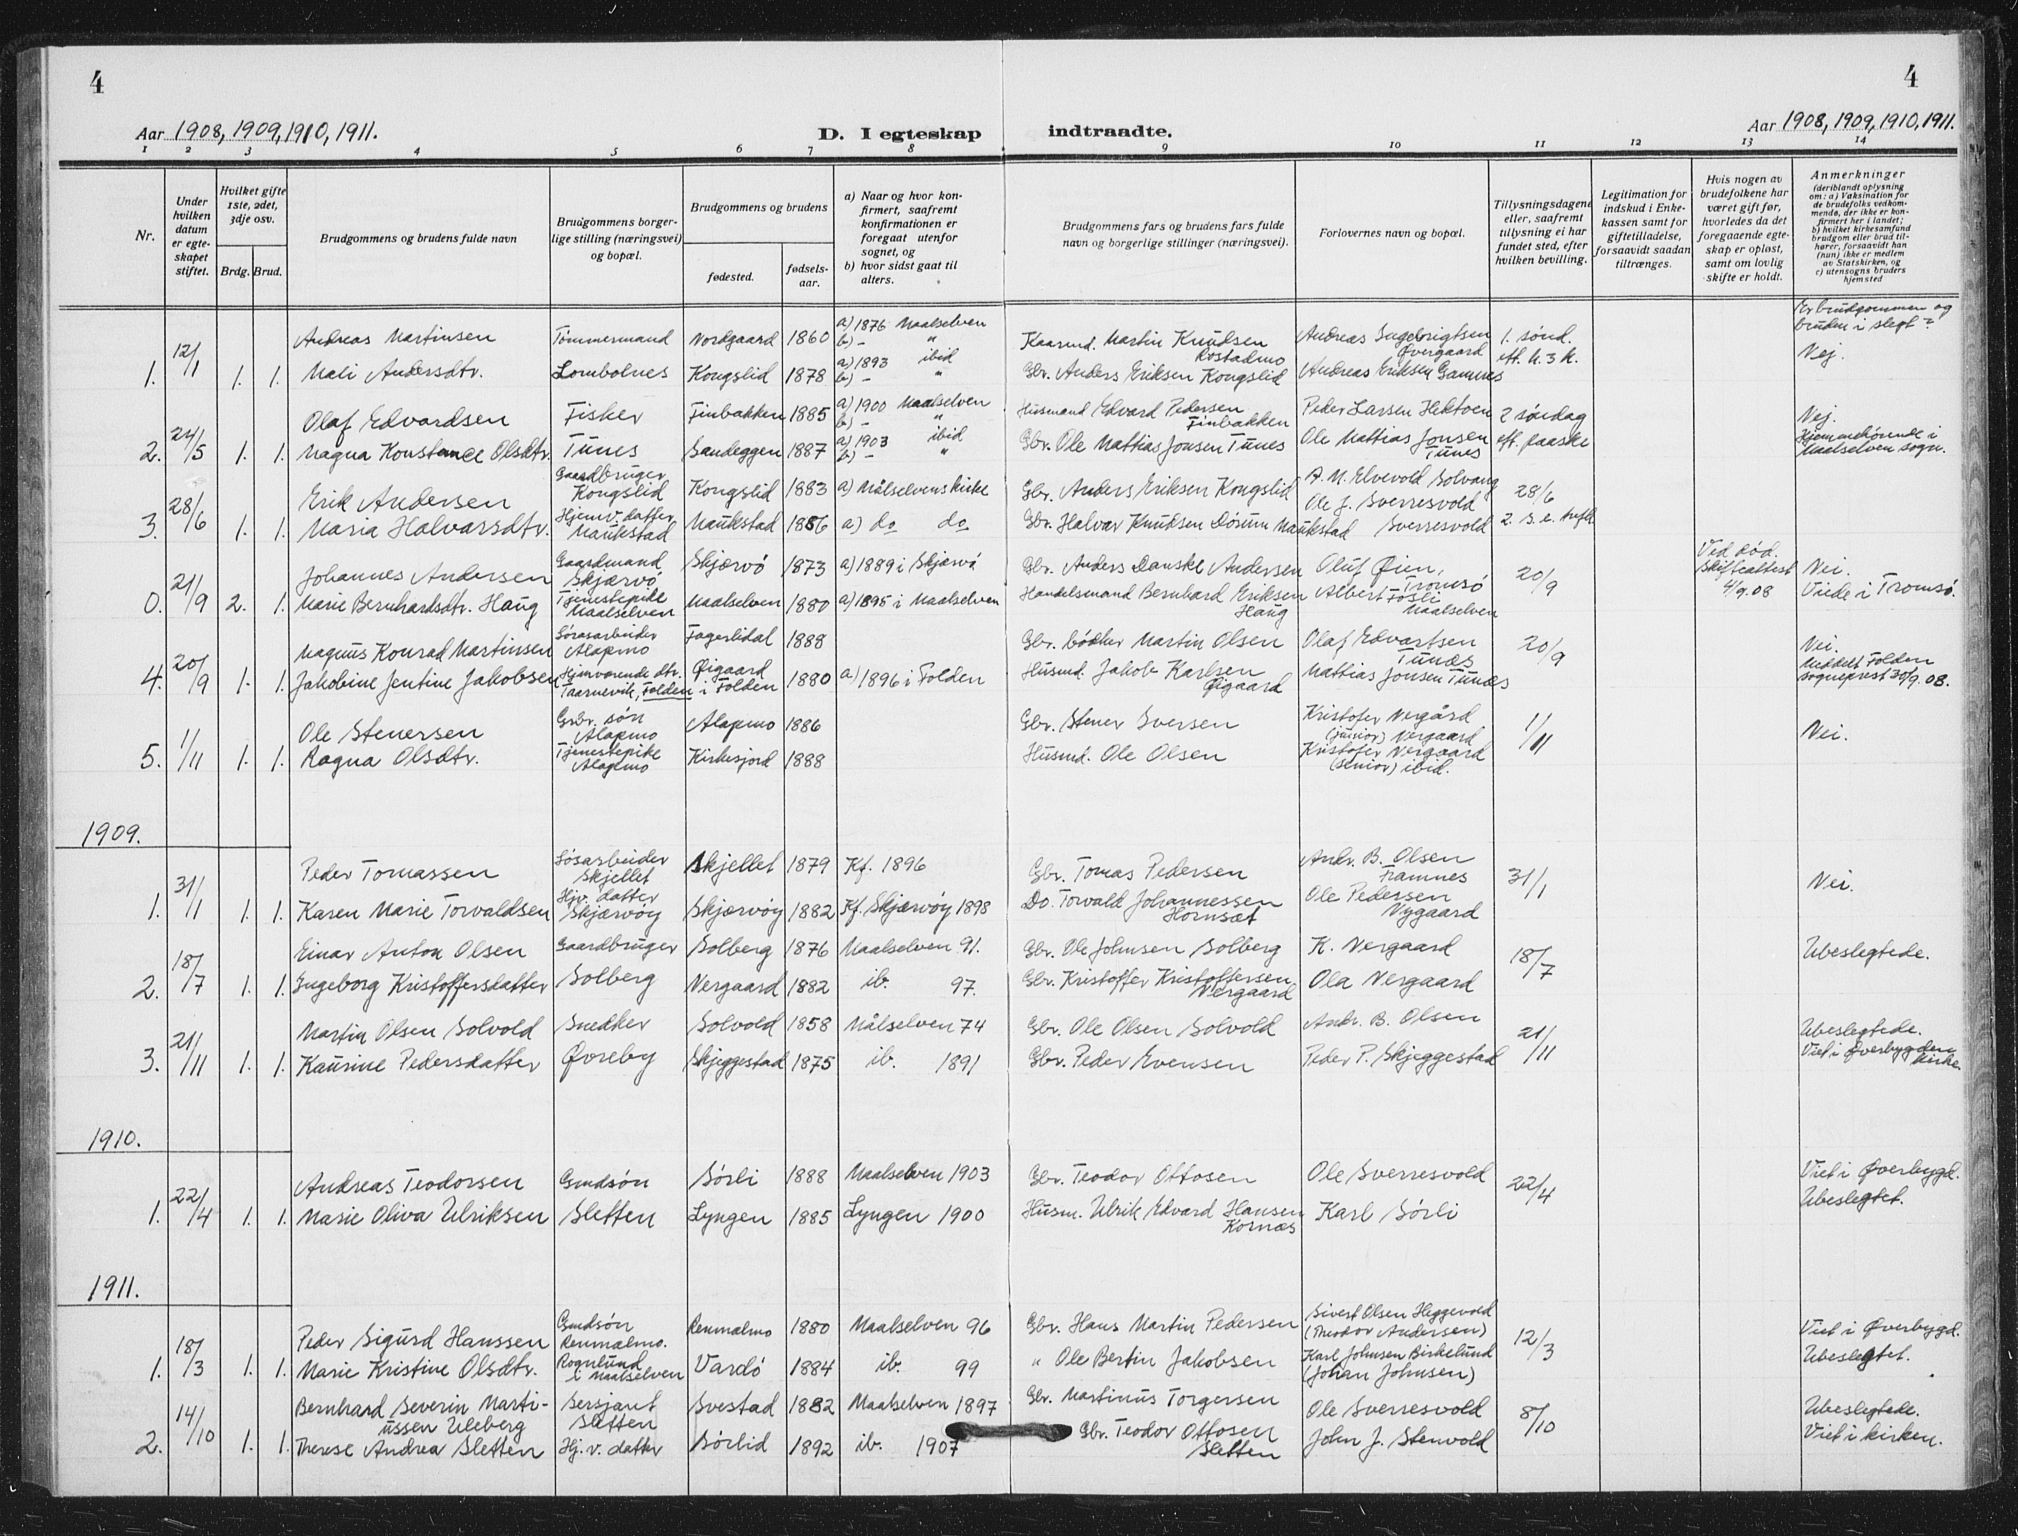 4
4
Aar 1908, 1909, 1910, 1911.
D. I egteskap indtraadte.
Aar 1908, 1909, 1910, 1911.
1 2 3 4 5 6 7 8 9 10 11 12 13 14
Nr.
Under hvilken datum er egteskapet stiftet.
Hvilket gifte 1ste, 2det, 3dje osv.
Brdg. Brud.
Brudgommens og brudens fulde navn
Brudgommens borgerlige stilling (næringsvei) og bopæl.
Brudgommens og brudens
fødested.
fødselsaar.
a) Naar og hvor konfirmert, saafremt konfirmationen er foregaat utenfor sognet, og
b) hvor sidst gaat til alters.
Brudgommens fars og brudens fars fulde navn og borgerlige stillinger (næringsvei).
Forlovernes navn og bopæl.
Tillysningsdagene eller, saafremt tillysning ei har fundet sted, efter hvilken bevilling.
Legitimation for indskud i Enkekassen samt for giftetilladelse, forsaavidt saadan tiltrænges.
Hvis nogen av brudefolkene har været gift før, hvorledes da det foregaaende egteskap er opløst, samt om lovlig skifte er holdt.
Anmerkninger
(deriblandt oplysning om: a) Vaksination for de brudefolks vedkommende, der ikke er konfirmert her i landet;
b) hvilket kirkesamfund brudgom eller brud tilhører, forsaavidt han (hun) ikke er medlem av Statskirken, og
c) utensogns bruders hjemsted
Er brudgommen og bruden i slegt?
Andreas Martinsen Tømmermand Nordgaard 1860 a) 1876 Maalselven b) - " Kaarmd. Martin Knudsen Rostadmo Andreas Ingebrigtsen Øvergaard 1. sønd. Nej.
1. 12/1 1. 1. Mali Andersdtr. Lombolnes Kongslid 1878 a) 1893 ibid b) - " Gbr. Anders Eriksen Kongslid Andreas Eriksen Gamnes eft. h. 3 k.
Olaf Edvardsen Fisker Finbakken 1885 a) 1900 Maalselven b) - " Husmand Edvard Pedersen Finbakken Peder Larsen Hektoen 2 søndag Nej.
2. 24/5 1. 1. Magna Konstance Olsdtr. Tunes Sandeggen 1887 a) 1903 ibid b) - " Gbr. Ole Mattias Jonsen Tunes Ole Mattias Jonsen Tunes eft. paaske Hjemmehørende i Maalselven sogn.
Erik Andersen Gaardbruger Kongslid Kongslid 1883 a) Målselvens kirke Gbr. Anders Eriksen Kongslid A. M. Elvevold Solvang 28/6
3. 28/6 1. 1. Maria Halvarsdtr. Hjemv. datter Maukstad Maukstad 1886 a) do do Gbr. Halvar Knudsen Døsum Maukstad Ole J. Sverresvold Sverresvold 2. s. e. trefh
Johannes Andersen Gaardmand Skjærvö Skjærvö 1873 a) 1889 i Skjærvö Gbr. Anders Danske Andersen Oluf Øien, Tromsö 20/9 Ved død. Skifteattest 4/9 08 Nei.
0. 21/9 2. 1. Marie Bernhardsdtr. Haug Tjenestepike Maalselven Maalselven 1880 a) 1895 i Maalselven Handelsmand Bernhard Eriksen Haug Albert Fosli Maalselven Viede i Tromsö.
Magnus Konrad Martinsen Sörasarbeider Alapmo Fagerlidal 1888 Gbr. bödker Martin Olsen Olaf Edvartsen Tunæs 20/9 Nei.
4. 20/9 1. 1. Jakobine Jentine Jakobsen Hjemværende dtr. Taarnevik, Folden Øigaard i Folden 1880 a) 1896 i Folden Husmd. Jakob Karlsen Øigaard Mattias Jonsen Tunæs Meddelt Folden sogneprest 30/9. 08.
Ole Stenersen Grbr. søn Alapmo Alapmo 1886 Gbr. Stener Iversen Kristofer Nergård (junior) Nergaard 1/11 Nei.
5. 1/11 1. 1. Ragna Olsdtr. Tjenestepike Alapmo Kirkesjord 1888 Husmd. Ole Olsen Kristofer Nergaard (senior) ibid.
1909.
Peder Tomassen Løsarbeider Skjellet Skjellet 1879 Kf. 1896 Gbr. Tomas Pedersen Andr. B. Olsen Framnes 31/1 Nei.
1. 31/1 1. 1. Karen Marie Torvaldsen Hjv. datter Skjærvöy Skjærvöy 1882 Kf. Skjærvöy 1898 Do. Torvald Johannessen Hornset Ole Pedersen Nygaard
Einar Anton Olsen Gaardbruger Solberg 1876 Maalselven 91. Gbr. Ole Johnsen Solberg K. Nergaard 18/7 Ubeslegtede.
2. 18/7 1. 1. Ingeborg Kristoffersdatter Solberg Nergaard 1882 ib. 97. Gbr. Kristoffer Kristoffersen Nergaard Ola Nergaard
Martin Olsen Solvold Snedker Solvold 1858 Målselven 74 Gbr. Ole Olsen Solvold Andr. B. Olsen 21/11 Ubeslegtede.
3. 21/11 1. 1. Kaurine Pedersdatter Øvreby Skjeggestad 1875 ib. 1891 Gbr. Peder Evensen Peder P. Skjeggestad Viet i Øverbygden kirke.
1910.
Andreas Teodorsen Gmdsön Sörli 1888 Maalselven 1903 Gbr. Teodor Ottosen Ole Sverresvold 22/4 Viet i Øverbygd.
1. 22/4 1. 1. Marie Oliva Ulriksen Sletten Lyngen 1885 Lyngen 1900 Husm. Ulrik Edvard Hansen Kornæs Karl Sörli Ubeslegtet.
1911.
Peder Sigurd Hanssen Gmdsön Renmælmo. Renmælmo 1880 Maalselven 96 Gbr. Hans Martin Pedersen Sivert Olsen Heggevold (Theodor Andersen) 12/3 Viet i Øverbygd.
1. 18/3 1. 1. Marie Kristine Olsdtr. Rognlund i Maalselven Vardö 1884 ib. 99 " Ole Bertin Jakobsen Karl Johnsen Birkelund (Johan Johnsen) Ubeslegtet.
Bernhard Severin Martiussen Uleberg Sersjant Sletten Svestad 1882 Maalselven 1897 Gbr. Martinus Torgersen Ole Sverresvold 8/10 Ubeslegtede.
2. 14/10 1. 1. Therese Andrea Sletten Hj. v. datter Sörlid 1892 ib. 1907 Gbr. Teodor Ottosen Sletten John J. Stenvold Viet i kirken.